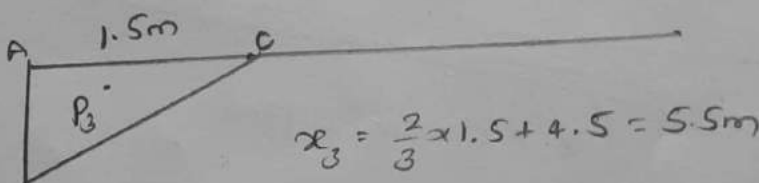 1.5m
A
C
P3
x3 = 2/3 x1.5 + 4.5 = 5.5m